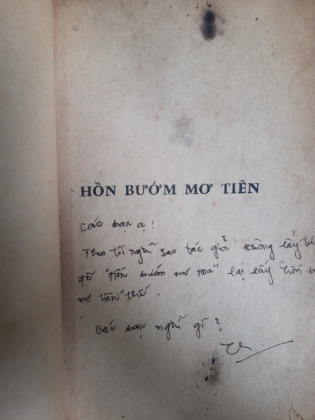 HỒN BƯỚM MƠ TIÊN
Các bạn ạ!
Theo tôi nghĩ sao tác giả không lấy
đề "Hồn bướm mơ hoa" lại lấy "hồn
mơ tiên" thế.
Các bạn nghĩ gì?